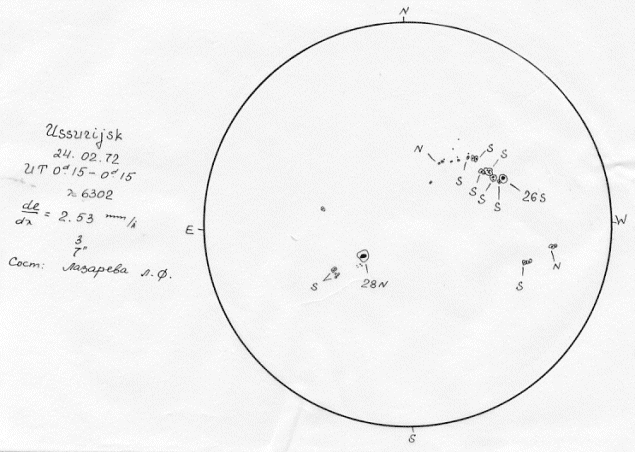 Ussurijsk
24.02.72
UT 0ᵈ.15 – 0ᵈ.15
λ 6302
de/dλ = 2.53 mm/Å
3
7"
Сост: Лазарева Л.Ф.
N
N
S
S
S
S
S
S
26S
E
W
N
S
28N
S
S